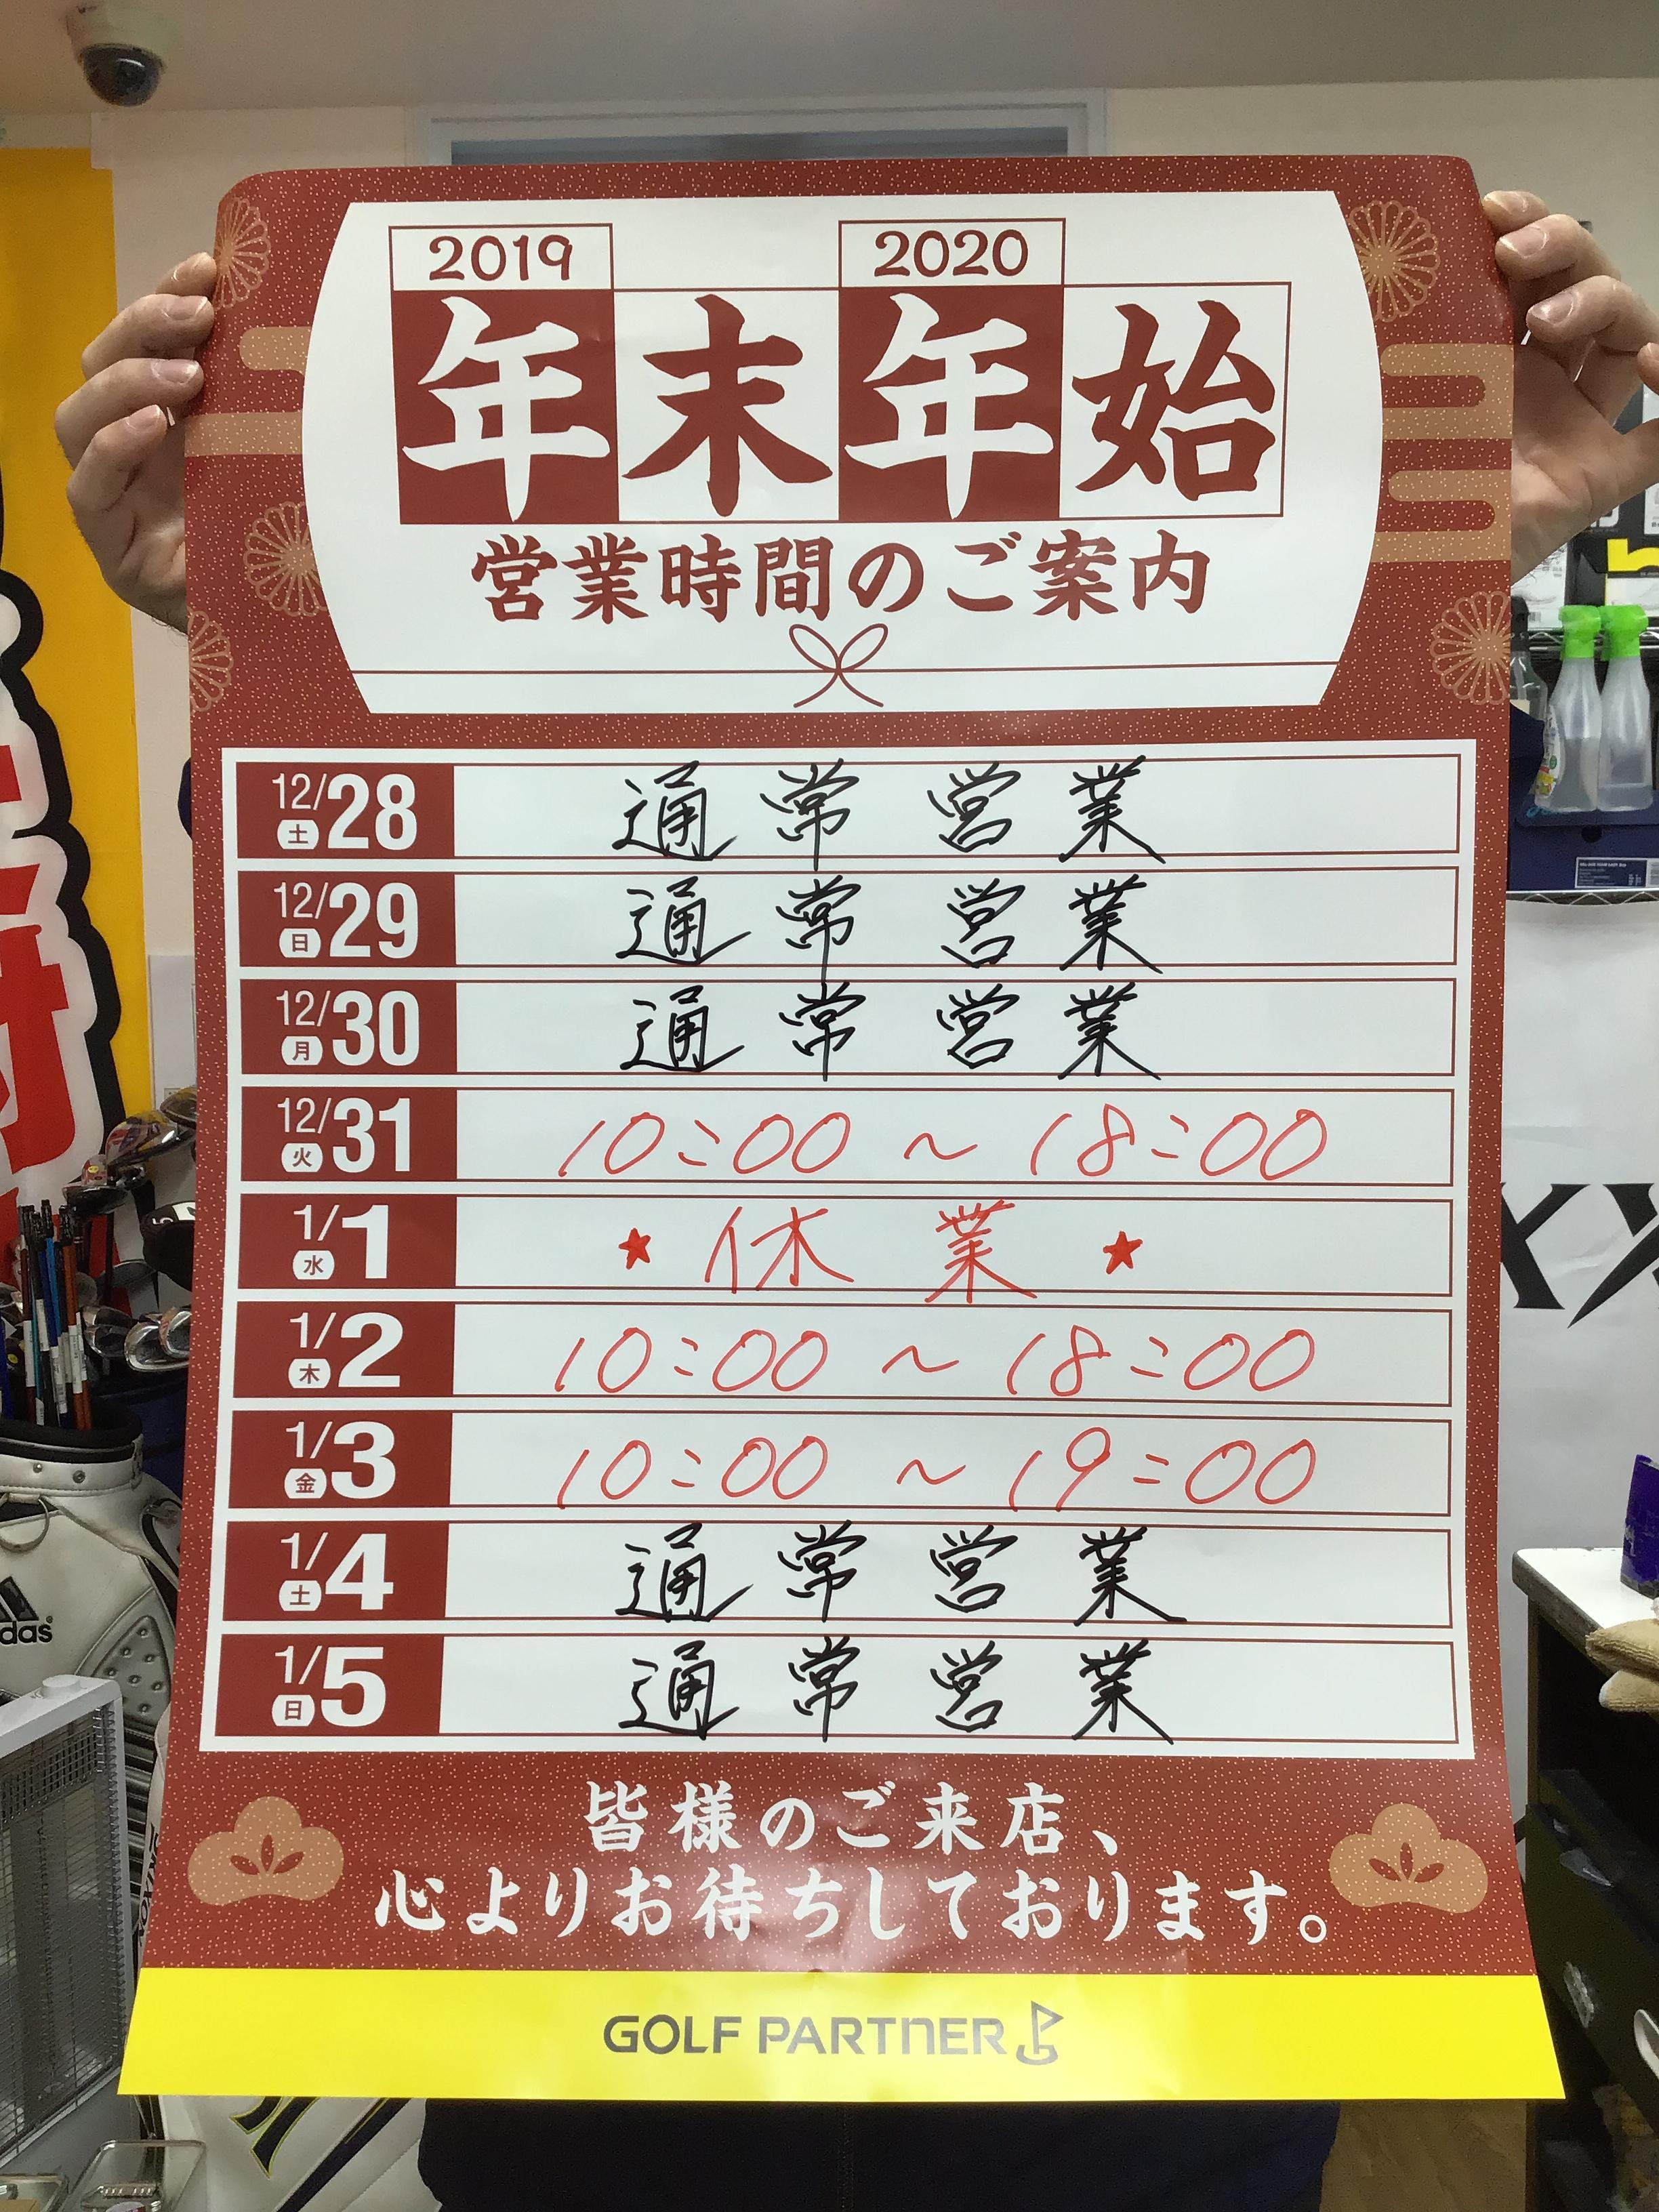 2019 2020
年末年始
営業時間のご案内
12/28 土 通常営業
12/29 日 通常営業
12/30 月 通常営業
12/31 火 10:00 ~ 18:00
1/1 水 ★ 休業 ★
1/2 木 10:00 ~ 18:00
1/3 金 10:00 ~ 19:00
1/4 土 通常営業
1/5 日 通常営業
皆様のご来店、
心よりお待ちしております。
GOLF PARTNER